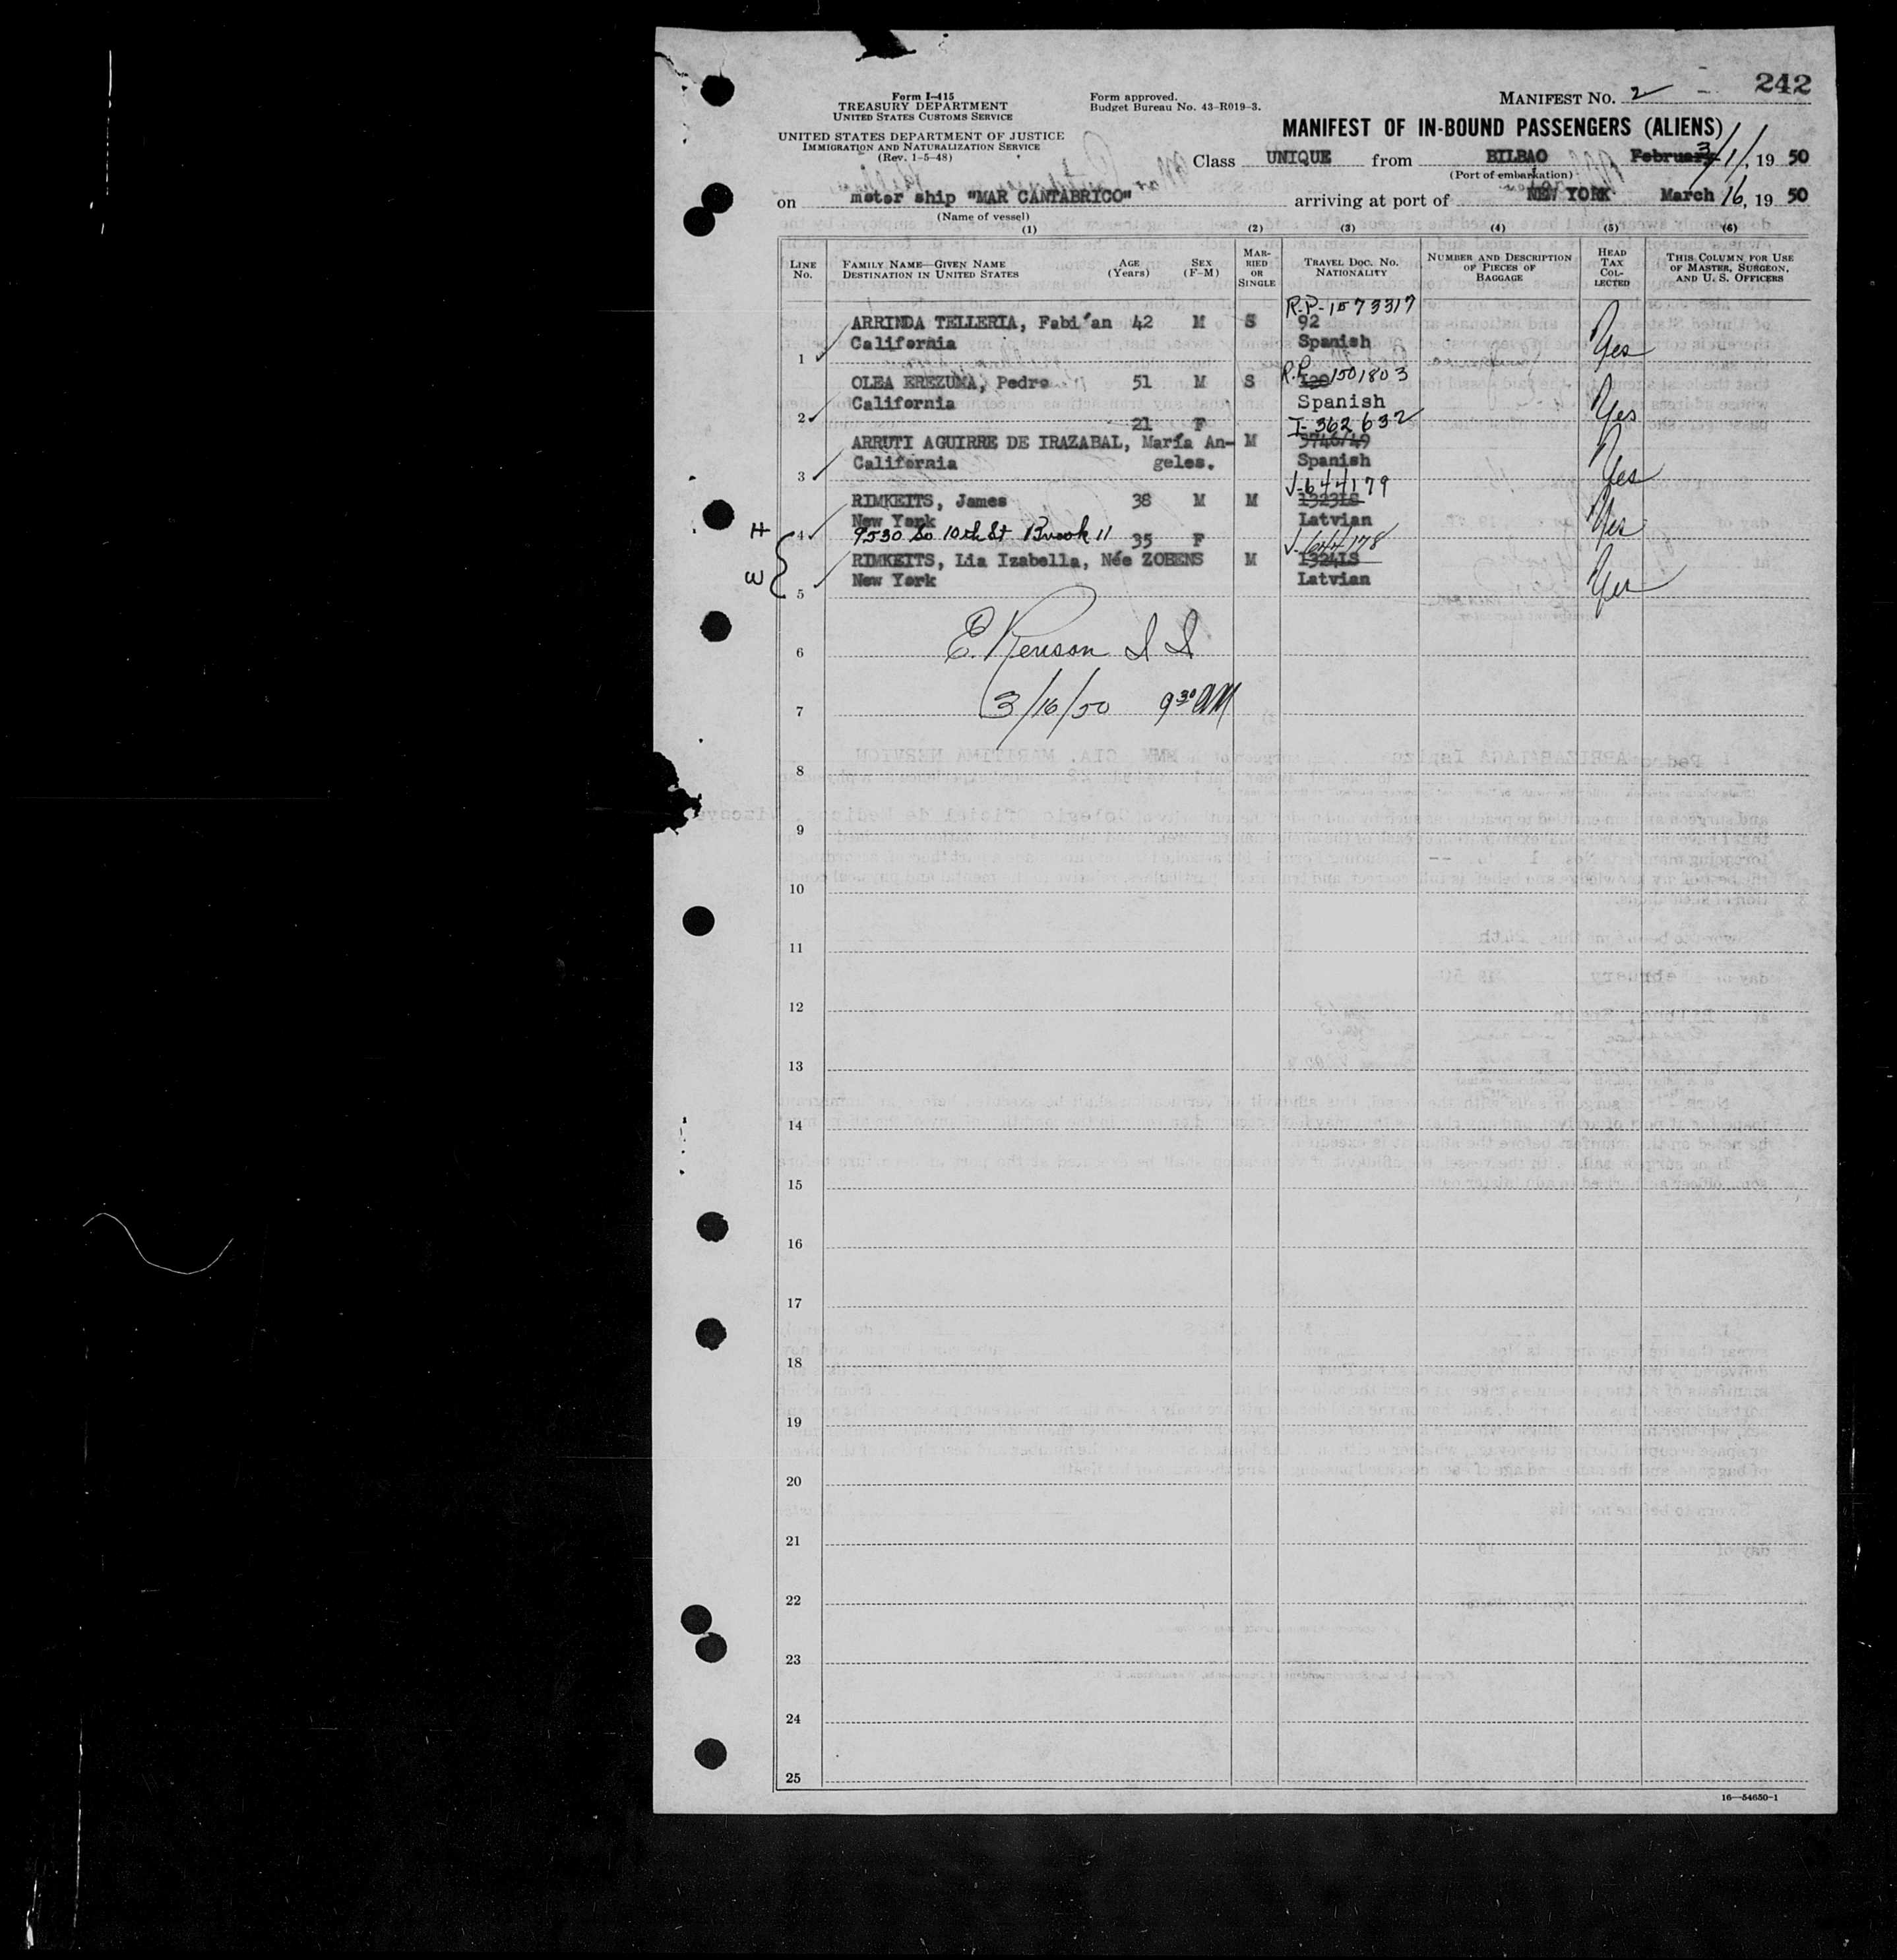 242
Form I-415
TREASURY DEPARTMENT
UNITED STATES CUSTOMS SERVICE
UNITED STATES DEPARTMENT OF JUSTICE
IMMIGRATION AND NATURALIZATION SERVICE
(Rev. 1-5-48)
Form approved.
Budget Bureau No. 43-R019-3.
MANIFEST No. 2
MANIFEST OF IN-BOUND PASSENGERS (ALIENS)
Class UNIQUE from BILBAO February 3/1/, 19 50
(Port of embarkation)
on motor ship "MAR CANTABRICO" arriving at port of NEW YORK March 16, 19 50
(Name of vessel)
(1) (2) (3) (4) (5) (6)
LINE No.
FAMILY NAME—GIVEN NAME
DESTINATION IN UNITED STATES
AGE (Years)
SEX (F-M)
MARRIED OR SINGLE
TRAVEL DOC. NO.
NATIONALITY
NUMBER AND DESCRIPTION OF PIECES OF BAGGAGE
HEAD TAX COLLECTED
THIS COLUMN FOR USE OF MASTER, SURGEON, AND U. S. OFFICERS
R.P-1573317
ARRINDA TELLERIA, Fabi´an 42 M S 92
California Spanish
1 Yes
OLEA EREZUMA, Pedro 51 M S R.P. 120 1501803
California Spanish
2 Yes
21 F I-362632
ARRUTI AGUIRRE DE IRAZABAL, María An- M 3746/49
California geles. Spanish
3 Yes
V-644179
RIMKEITS, James 38 M M 1323LS
New York Latvian
H 4 9530 So 10th St Brook 11 Yes
35 F V-644178
RIMKEITS, Lia Izabella, Née ZOBENS M 1324LS
New York Latvian
W 5 Yes
E. Renson I I
6
3/16/50 9 30 AM
7
8
9
10
11
12
13
14
15
16
17
18
19
20
21
22
23
24
25
16—54650-1